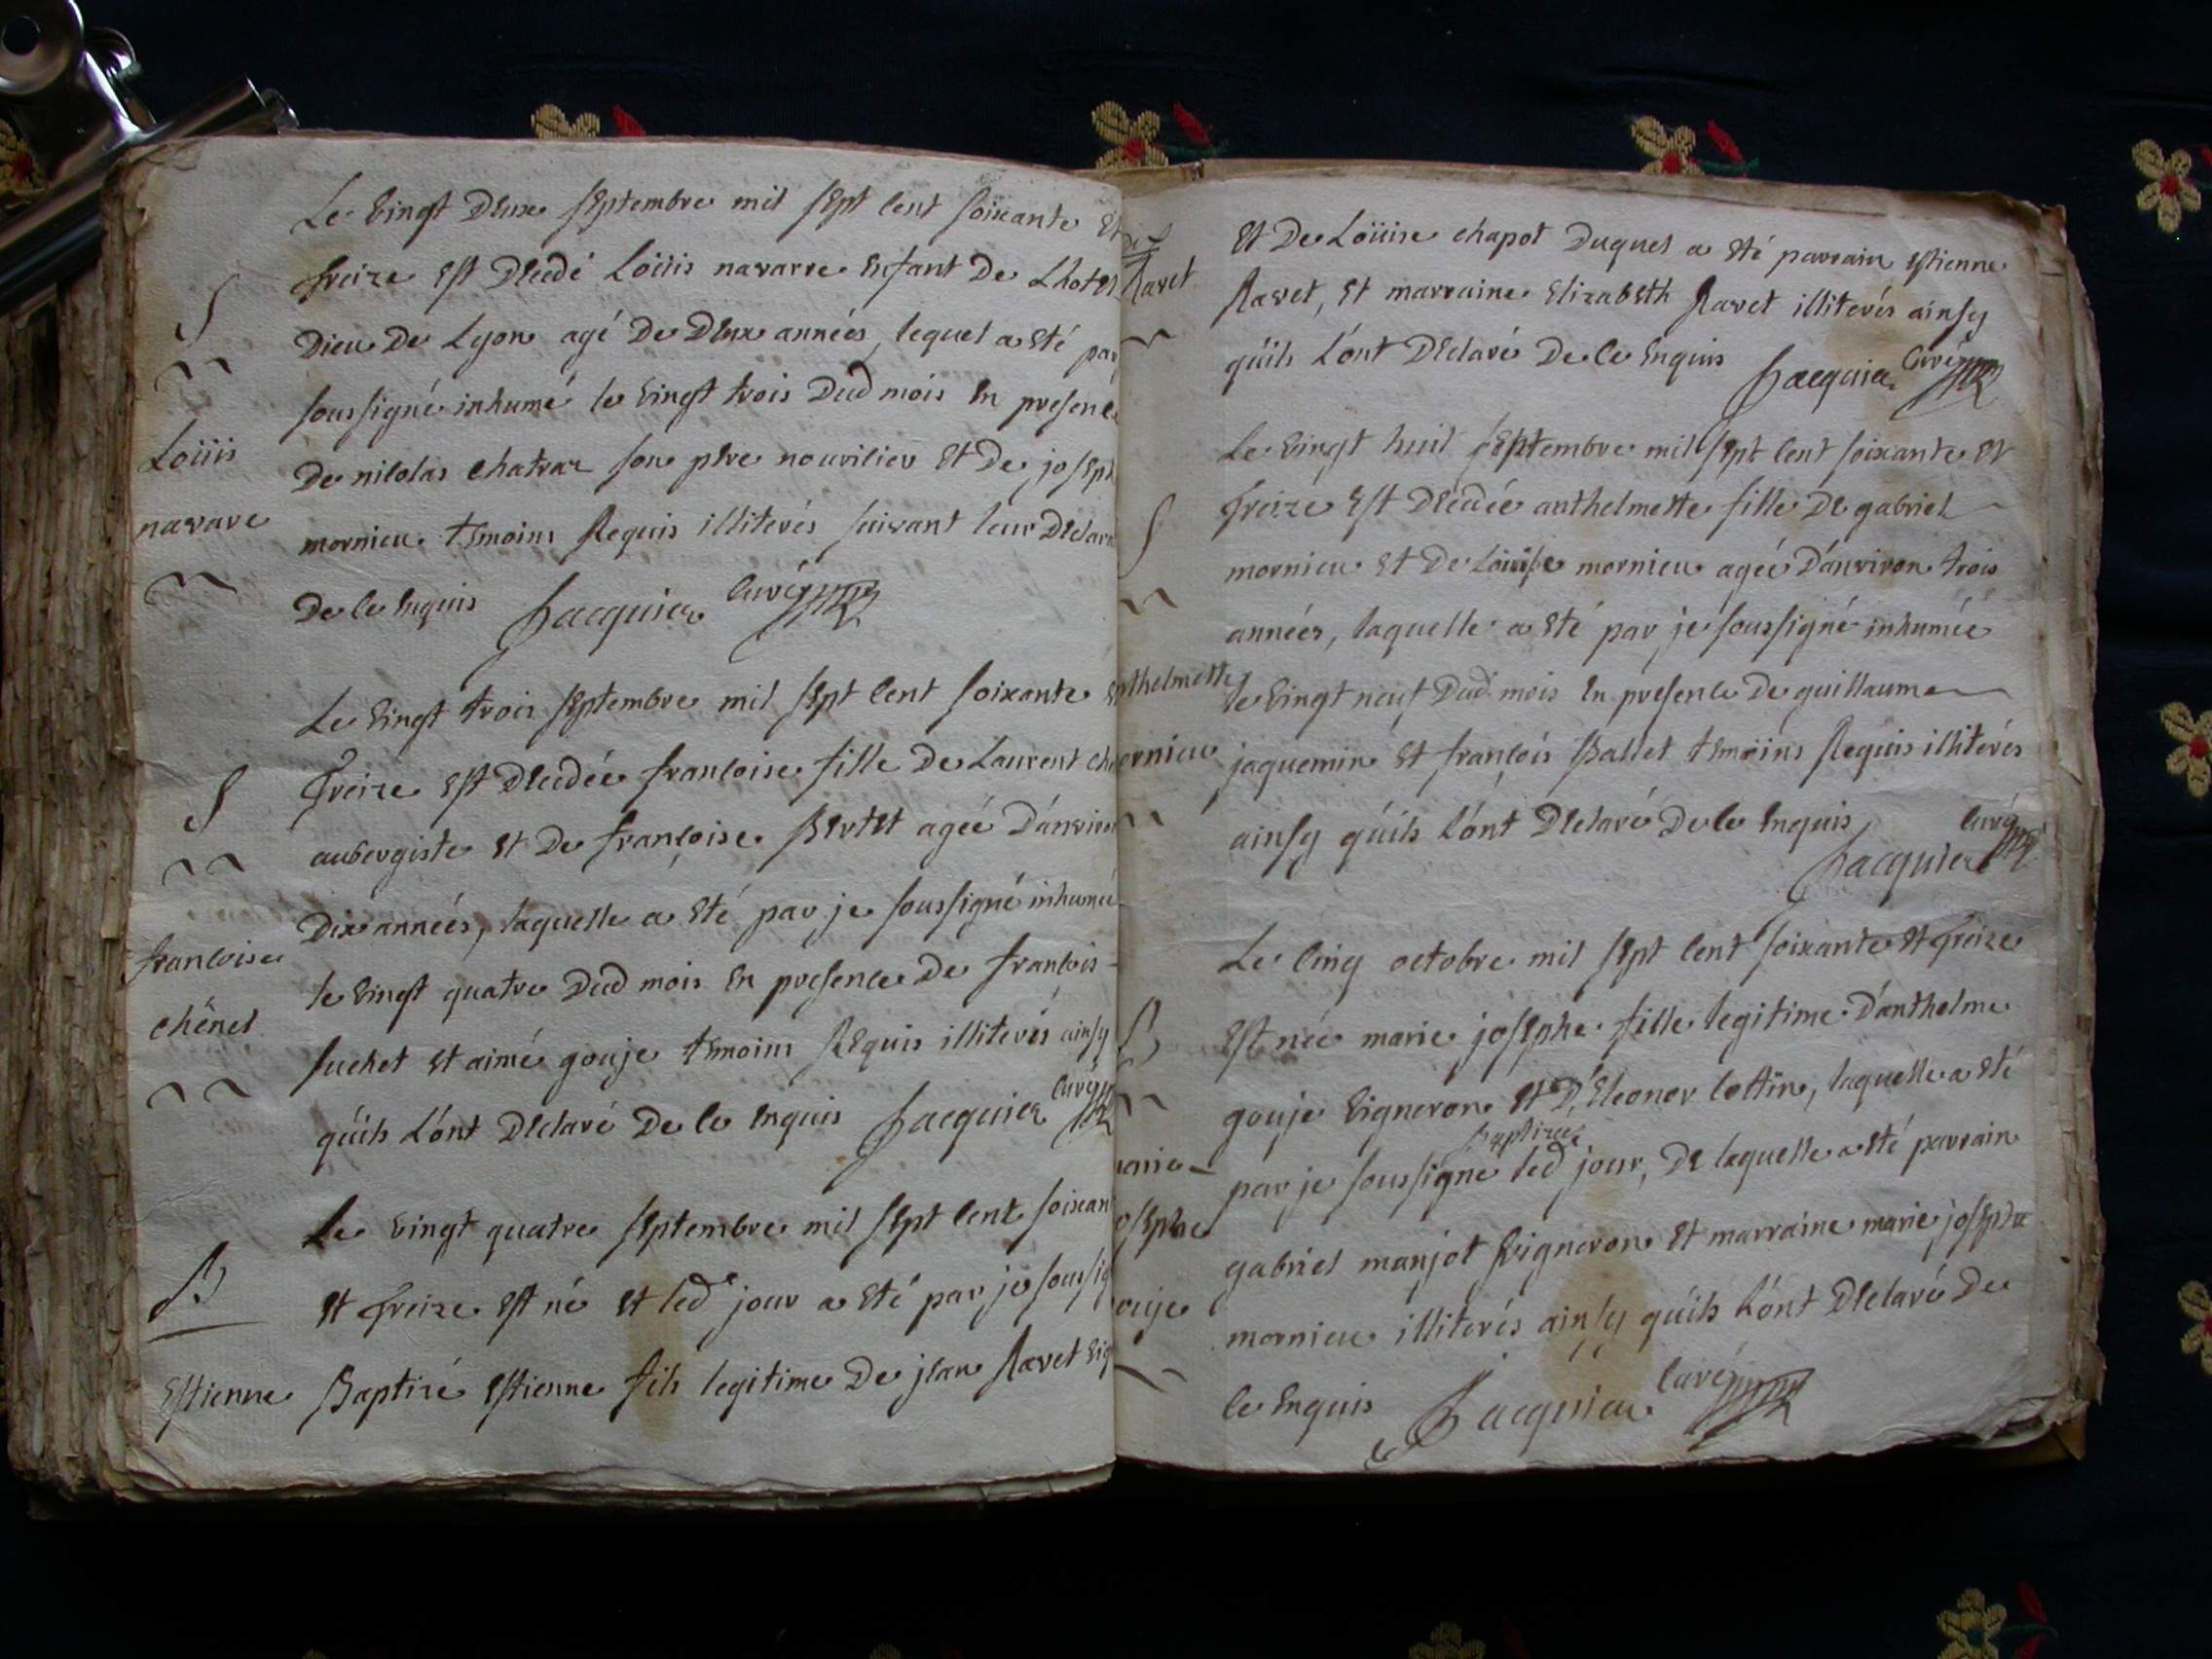 Le vingt deux septembre mil sept cent soixante et
treize est decedé Loüis navarre enfant de Lhotel
S
Dieu de Lyon agé de deux années, lequel a eté par
soussigné inhumé le vingt trois dud mois en presence
Loüis
de nicolas chatrar son pere nouricier et de joseph
navare
mornieu temoins requis illiterés suivant leur declara
de ce enquis Jacquier curé
Le vingt trois septembre mil sept cent soixante
treize est decedée francoise fille de Laurent
S
aubergiste et de françoise Bertet agée d'anviron
dix années, laquelle a eté par je soussigné inhumée
francoise
le vingt quatre dud mois en presence de francois
chênel
suchet et aimé gouje temoins requis illiterés ainsy
qu'ils l'ont declaré de ce enquis Jacquier curé
Le vingt quatre septembre mil sept cent soixan
B
et treize est né et led jour a eté par je soussig
Estienne
Baptizé estienne fils legitime de jean Ravet vig
Ravet
et de Loüise chapot duquel a eté parrain estienne
Ravet, et marraine elizabeth Ravet illiterés ainsy
qu'ils l'ont declaré de ce enquis Jacquier curé
Le vingt huit septembre mil sept cent soixante et
S
treize est decedée anthelmette fille de gabriel
mornieu et de Loüise mornieu agée d'anviron trois
années, laquelle a eté par je soussigné inhumée
nthelmette
le vingt neuf dud mois en presence de guillaume
ornieu
jaquemin et francois Ballet temoins requis illiterés
ainsy qu'ils l'ont declaré de ce enquis Jacquier curé
Le cinq octobre mil sept cent soixante et treize
B
est née marie josephe fille legitime d'anthelme
gouje vigneron et d'Eleonor cottin, laquelle a eté
baptizée
par je soussigné led jour, de laquelle a eté parrain
arie
osephe
gabriel manjot vigneron et marraine marie josephe
ouje
mornieu illiterés ainsy qu'ils l'ont declaré de
ce enquis Jacquier curé